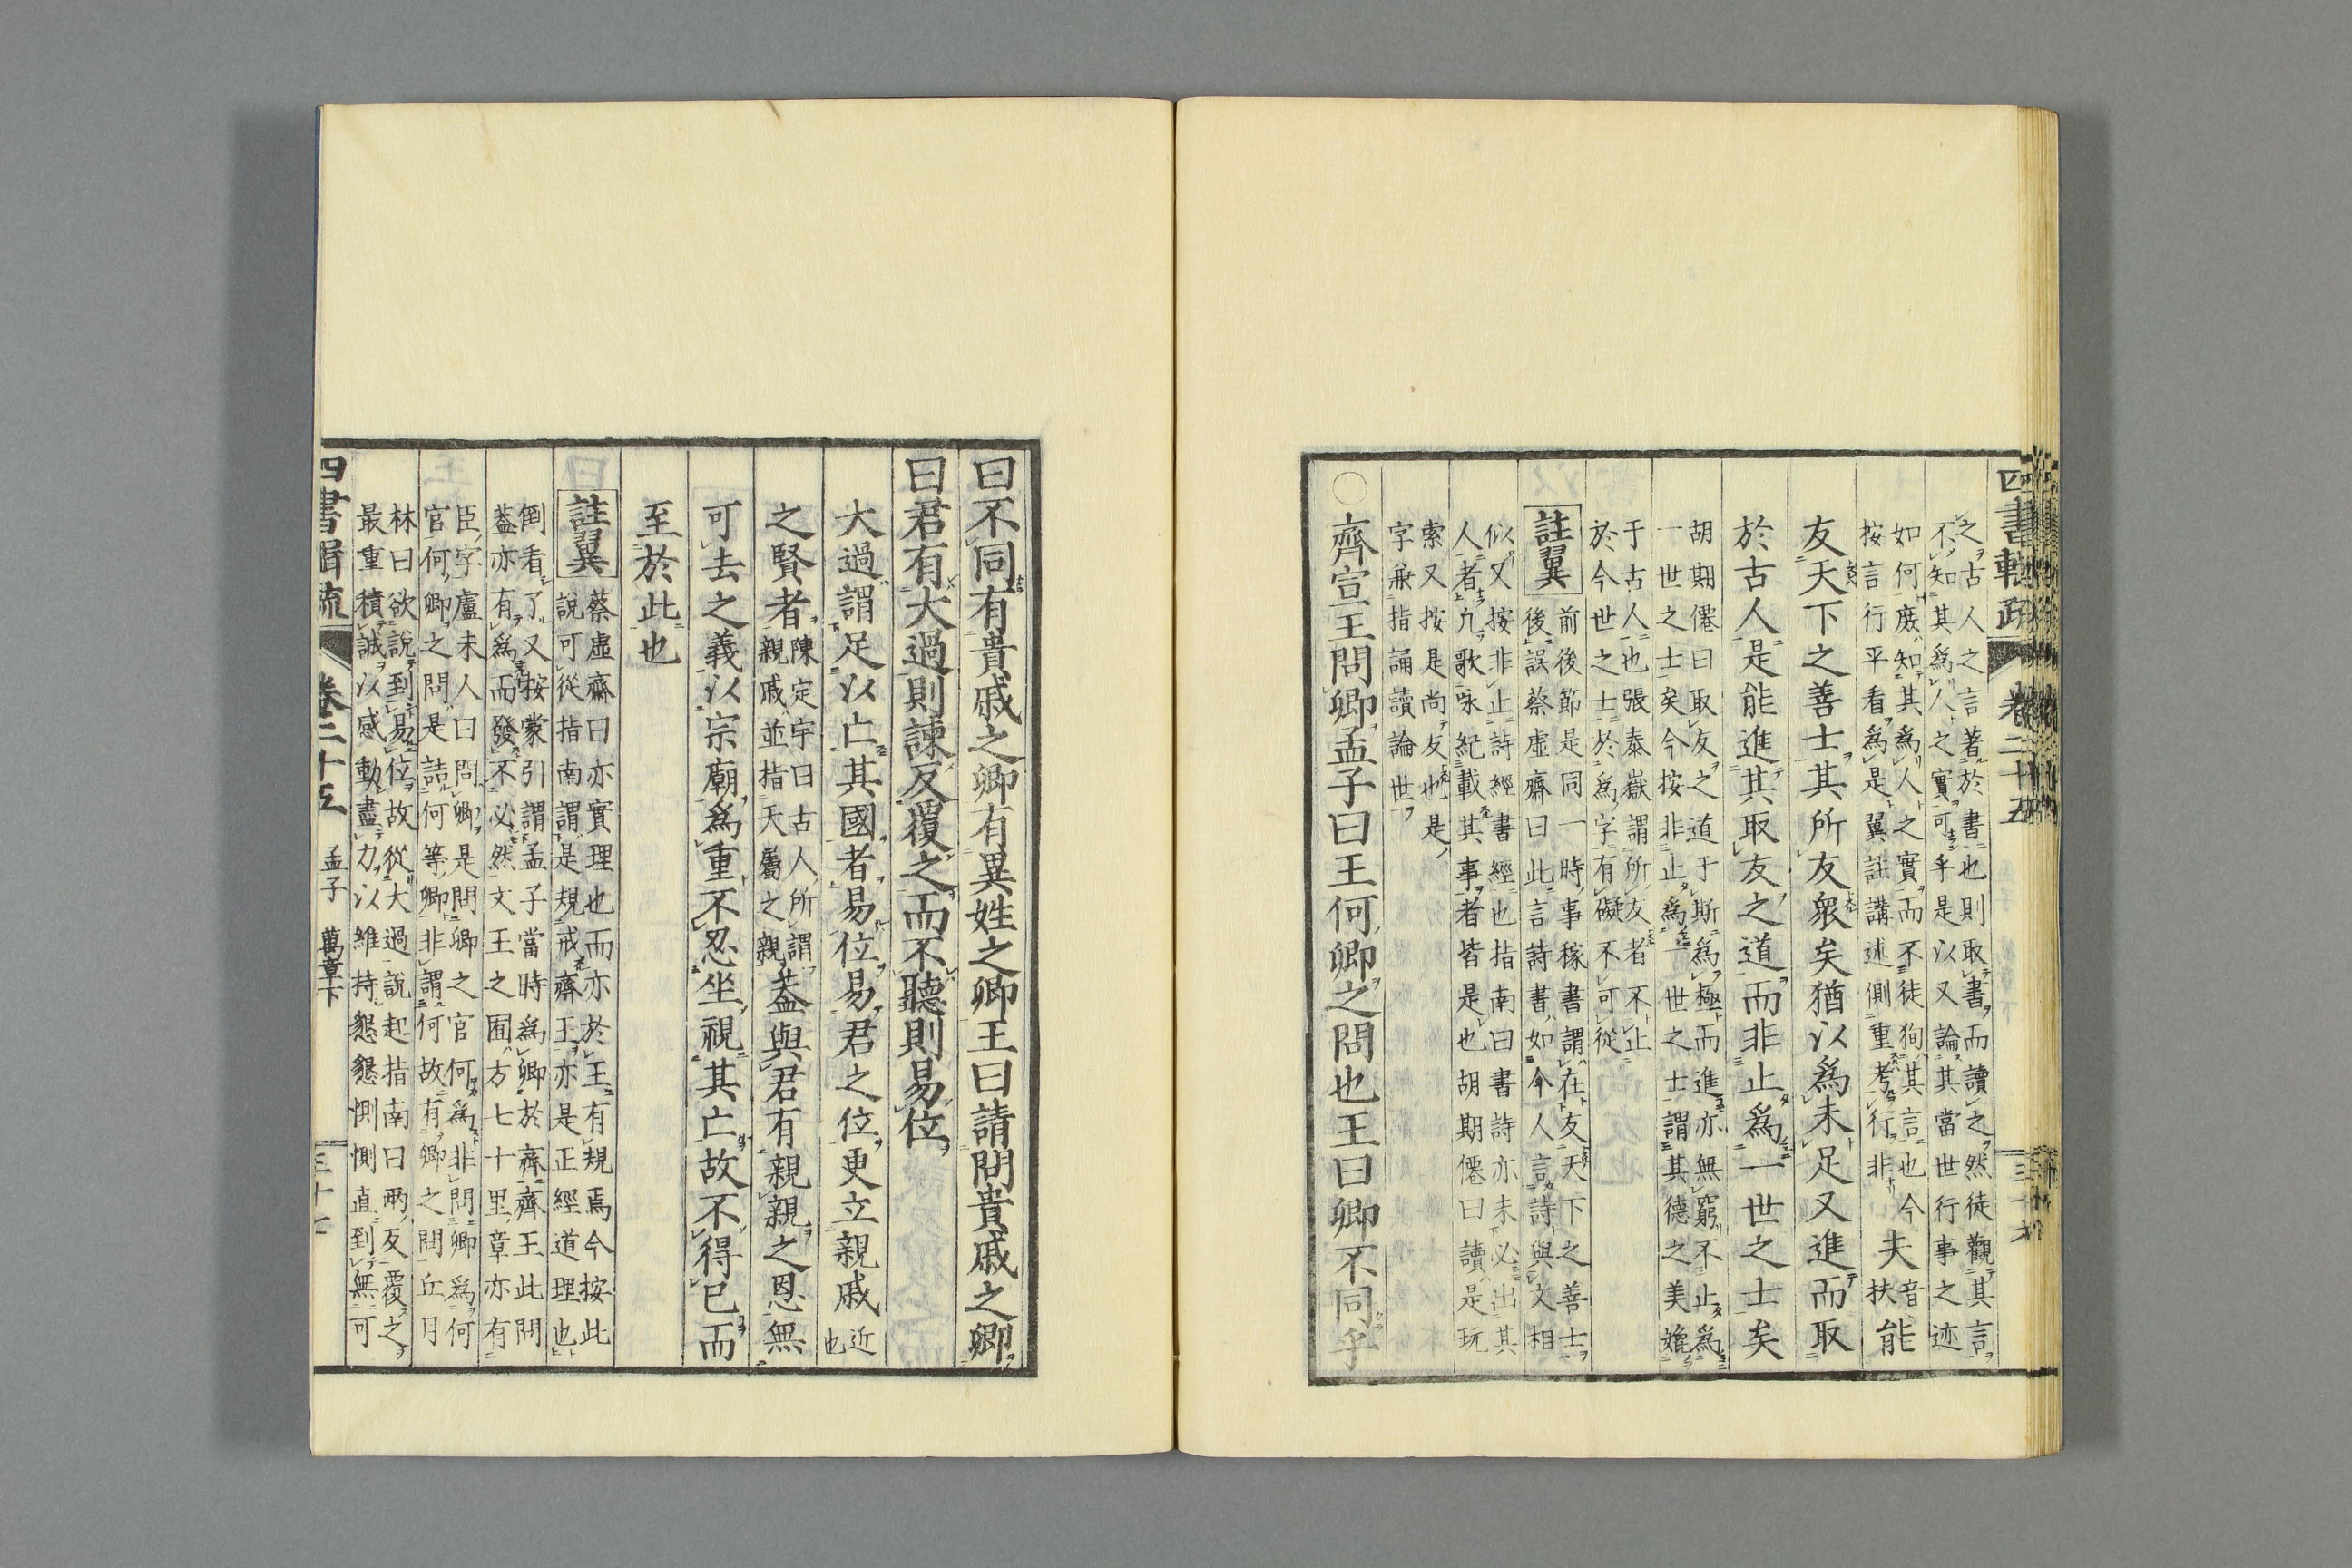 四書輯疏 卷二十五
之古人之言著於書也則取書而讀之然徒觀其言
不知其爲人之實可乎是以又論其當世行事之迹
如何庻知其爲人之實而不徒狥其言也今
按言行平看爲是翼註講述側重考行非
夫音扶能
友天下之善士其所友衆矣猶以爲未足又進而取
於古人是能進其取友之道而非止爲一世之士矣
胡期僊曰取友之道于斯爲極而進亦無窮不止爲
一世之士矣今按非止爲一世之士謂其德之美
于古人也張泰嶽謂所友者不止
於今世之士於爲字有礙不可從
註翼
前後節是同一時事稼書謂在友天下之善士
後誤蔡虛齋曰此言詩書如今人言詩與文相
似又按非止詩經書經也指南曰書詩亦未必出其
人者凢歌咏紀載其事者皆是也胡期僊曰讀是玩
索又按是尚友也是
字兼指誦讀論世
○齊宣王問卿孟子曰王何卿之問也王曰卿不同乎
曰不同有貴戚之卿有異姓之卿王曰請問貴戚之卿
曰君有大過則諫反覆之而不聽則易位
大過謂足以亡其國者易位易君之位更立親戚
近也
之賢者
陳定宇曰古人所謂
親戚並指天屬之親
蓋與君有親親之恩無
可去之義以宗廟爲重不忍坐視其亡故不得已而
至於此也
註翼
蔡虛齋曰亦實理也而亦於王有規焉今按此
說可從指南謂是規戒齊王亦是正經道理也
倒看了又按蒙引謂孟子當時爲卿於齊齊王此問
蓋亦有爲而發不必然文王之囿方七十里章亦有
臣字盧未人曰問卿是問卿之官何爲非問卿爲何
官何卿之問是詰何等卿非謂何故有卿之問丘月
林曰欲說到易位故從大過說起指南曰兩反覆之
最重積誠以感動盡力以維持懇懇惻惻直到無可
四書輯疏 卷二十五 孟子 萬章下